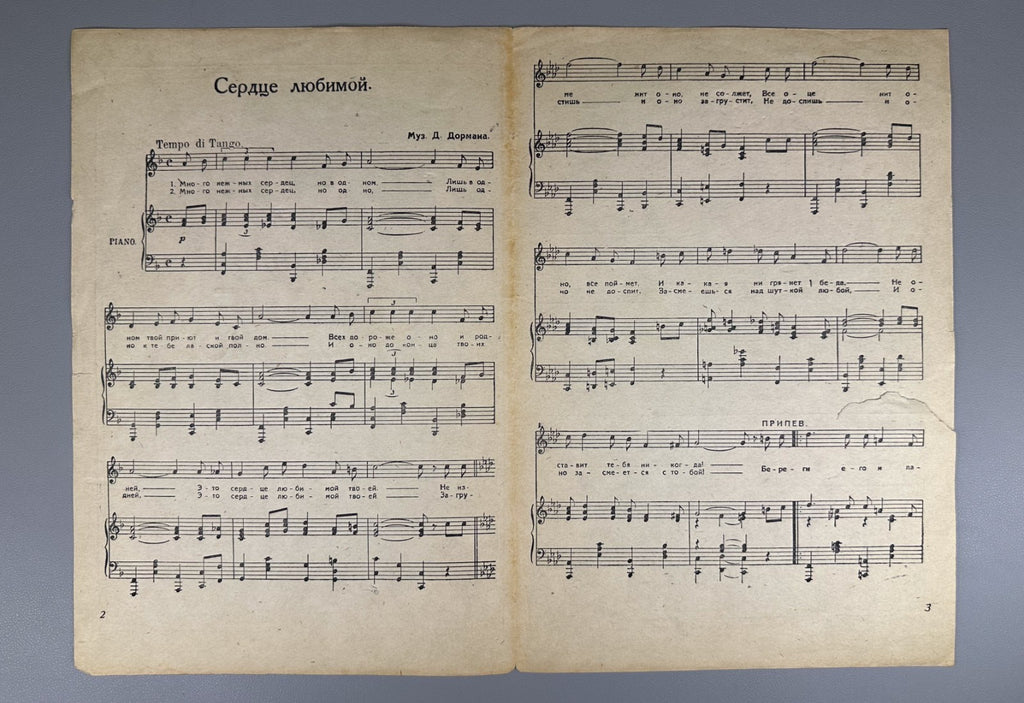 Сердце любимой.
Муз. Д. Дормана.
Tempo di Tango.
1. Мно-го неж-ных сер-дец, но в од-ном, Лишь в од-
2. Мно-го неж-ных сер-дец, но од-но, Лишь од-
PIANO.
p
3
3
ном твой при-ют и твой дом. Всех до-ро-же о-но и род-
но к те-бе ла-ской пол-но. И о-но до кон-ца тво-их
3
3
ней, Э-то серд-це лю-би-мой тво-ей. Не из-
дней, Э-то серд-це лю-би-мой тво-ей. За-гру-
2
ме нит о-но, не со-лжет, Все о-це нит о-
стишь и о-но за-гру-стит, Не до-спишь и о-
но, все пой-мет. И ка-ка-я ни гря-нет б бе-да, Не о-
но не до-спит. За-сме-ешь-ся над шут-кой лю-бой, И о-
ПРИПЕВ.
ста-вит те-бя ни-ког-да!
но за-сме-ет-ся с то-бой! Бе-ре-ги е-го и ла-
3